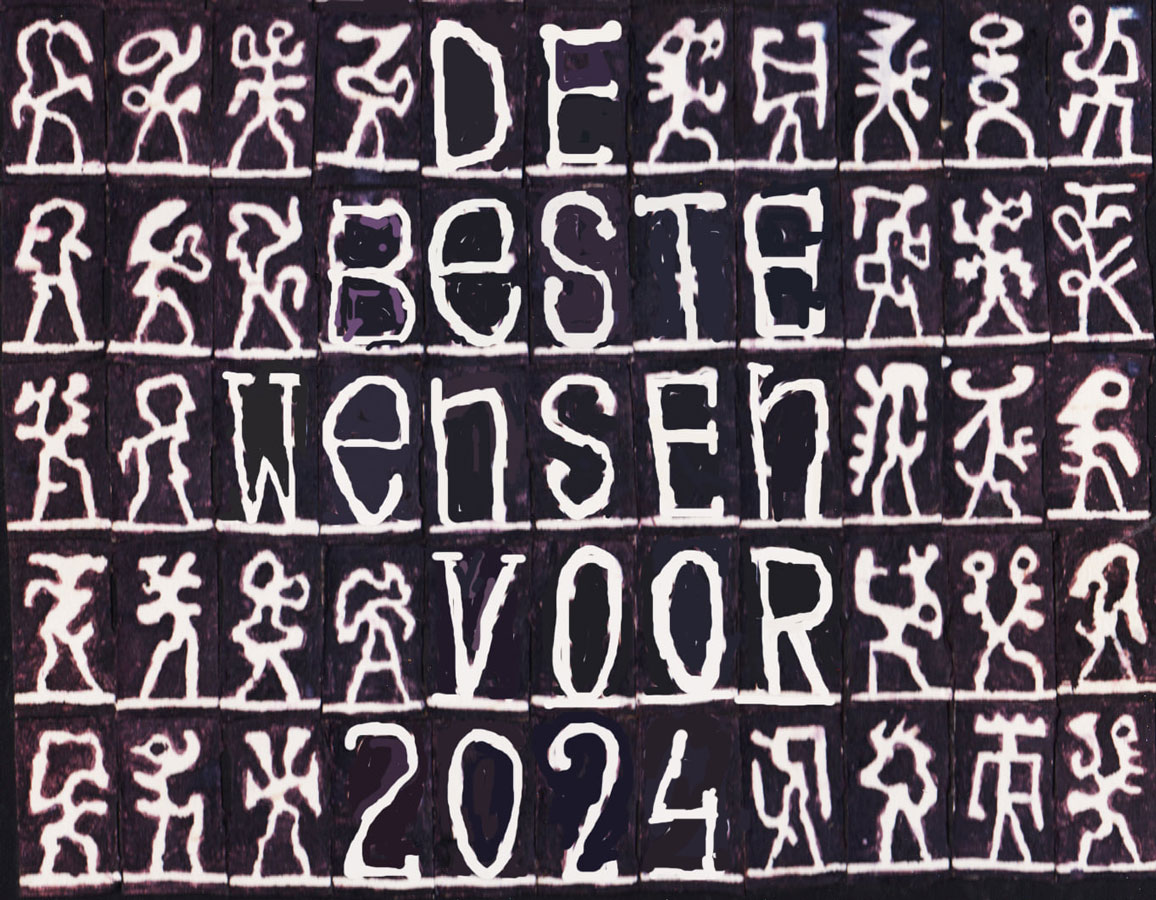 DE
BeSTE
WenSEn
VOOR
2024